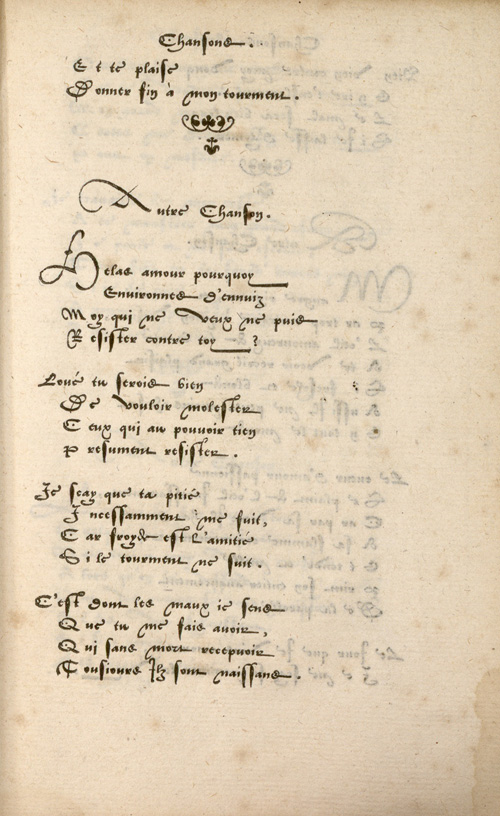 Chansons.
Et te plaise
Donner fin à mon tourment.
Autre Chanson.
Helas amour pourquoy
Environnes d'ennuiz
Moy qui ne veux ne puis
Resister contre toy ?
Loué tu serois bien
De vouloir molester
Ceux qui au pouvoir tien
Presument resister.
Je sçay que ta pitié
Incessamment me fuit,
Car froyde est l'amitié
Si le tourment ne suit.
C'est dont les maux ie sens
Que tu me fais avoir,
Qui sans mort recepvoir
Tousiours Ilz sont naissans.